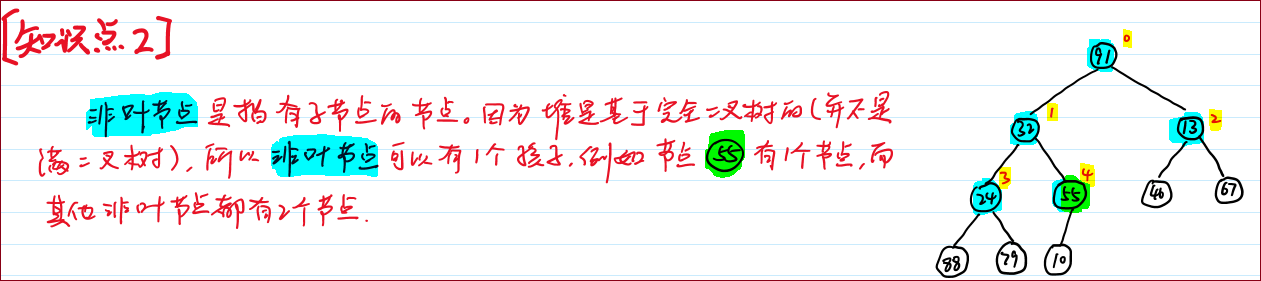 [知识点2]
非叶节点是指有子节点的节点。因为堆是基于完全二叉树的(并不是
满二叉树),所以非叶节点可以有1个孩子,例如节点55有1个节点,而
其他非叶节点都有2个节点.
0
91
1
32
2
13
3
24
4
55
46
67
88
79
10